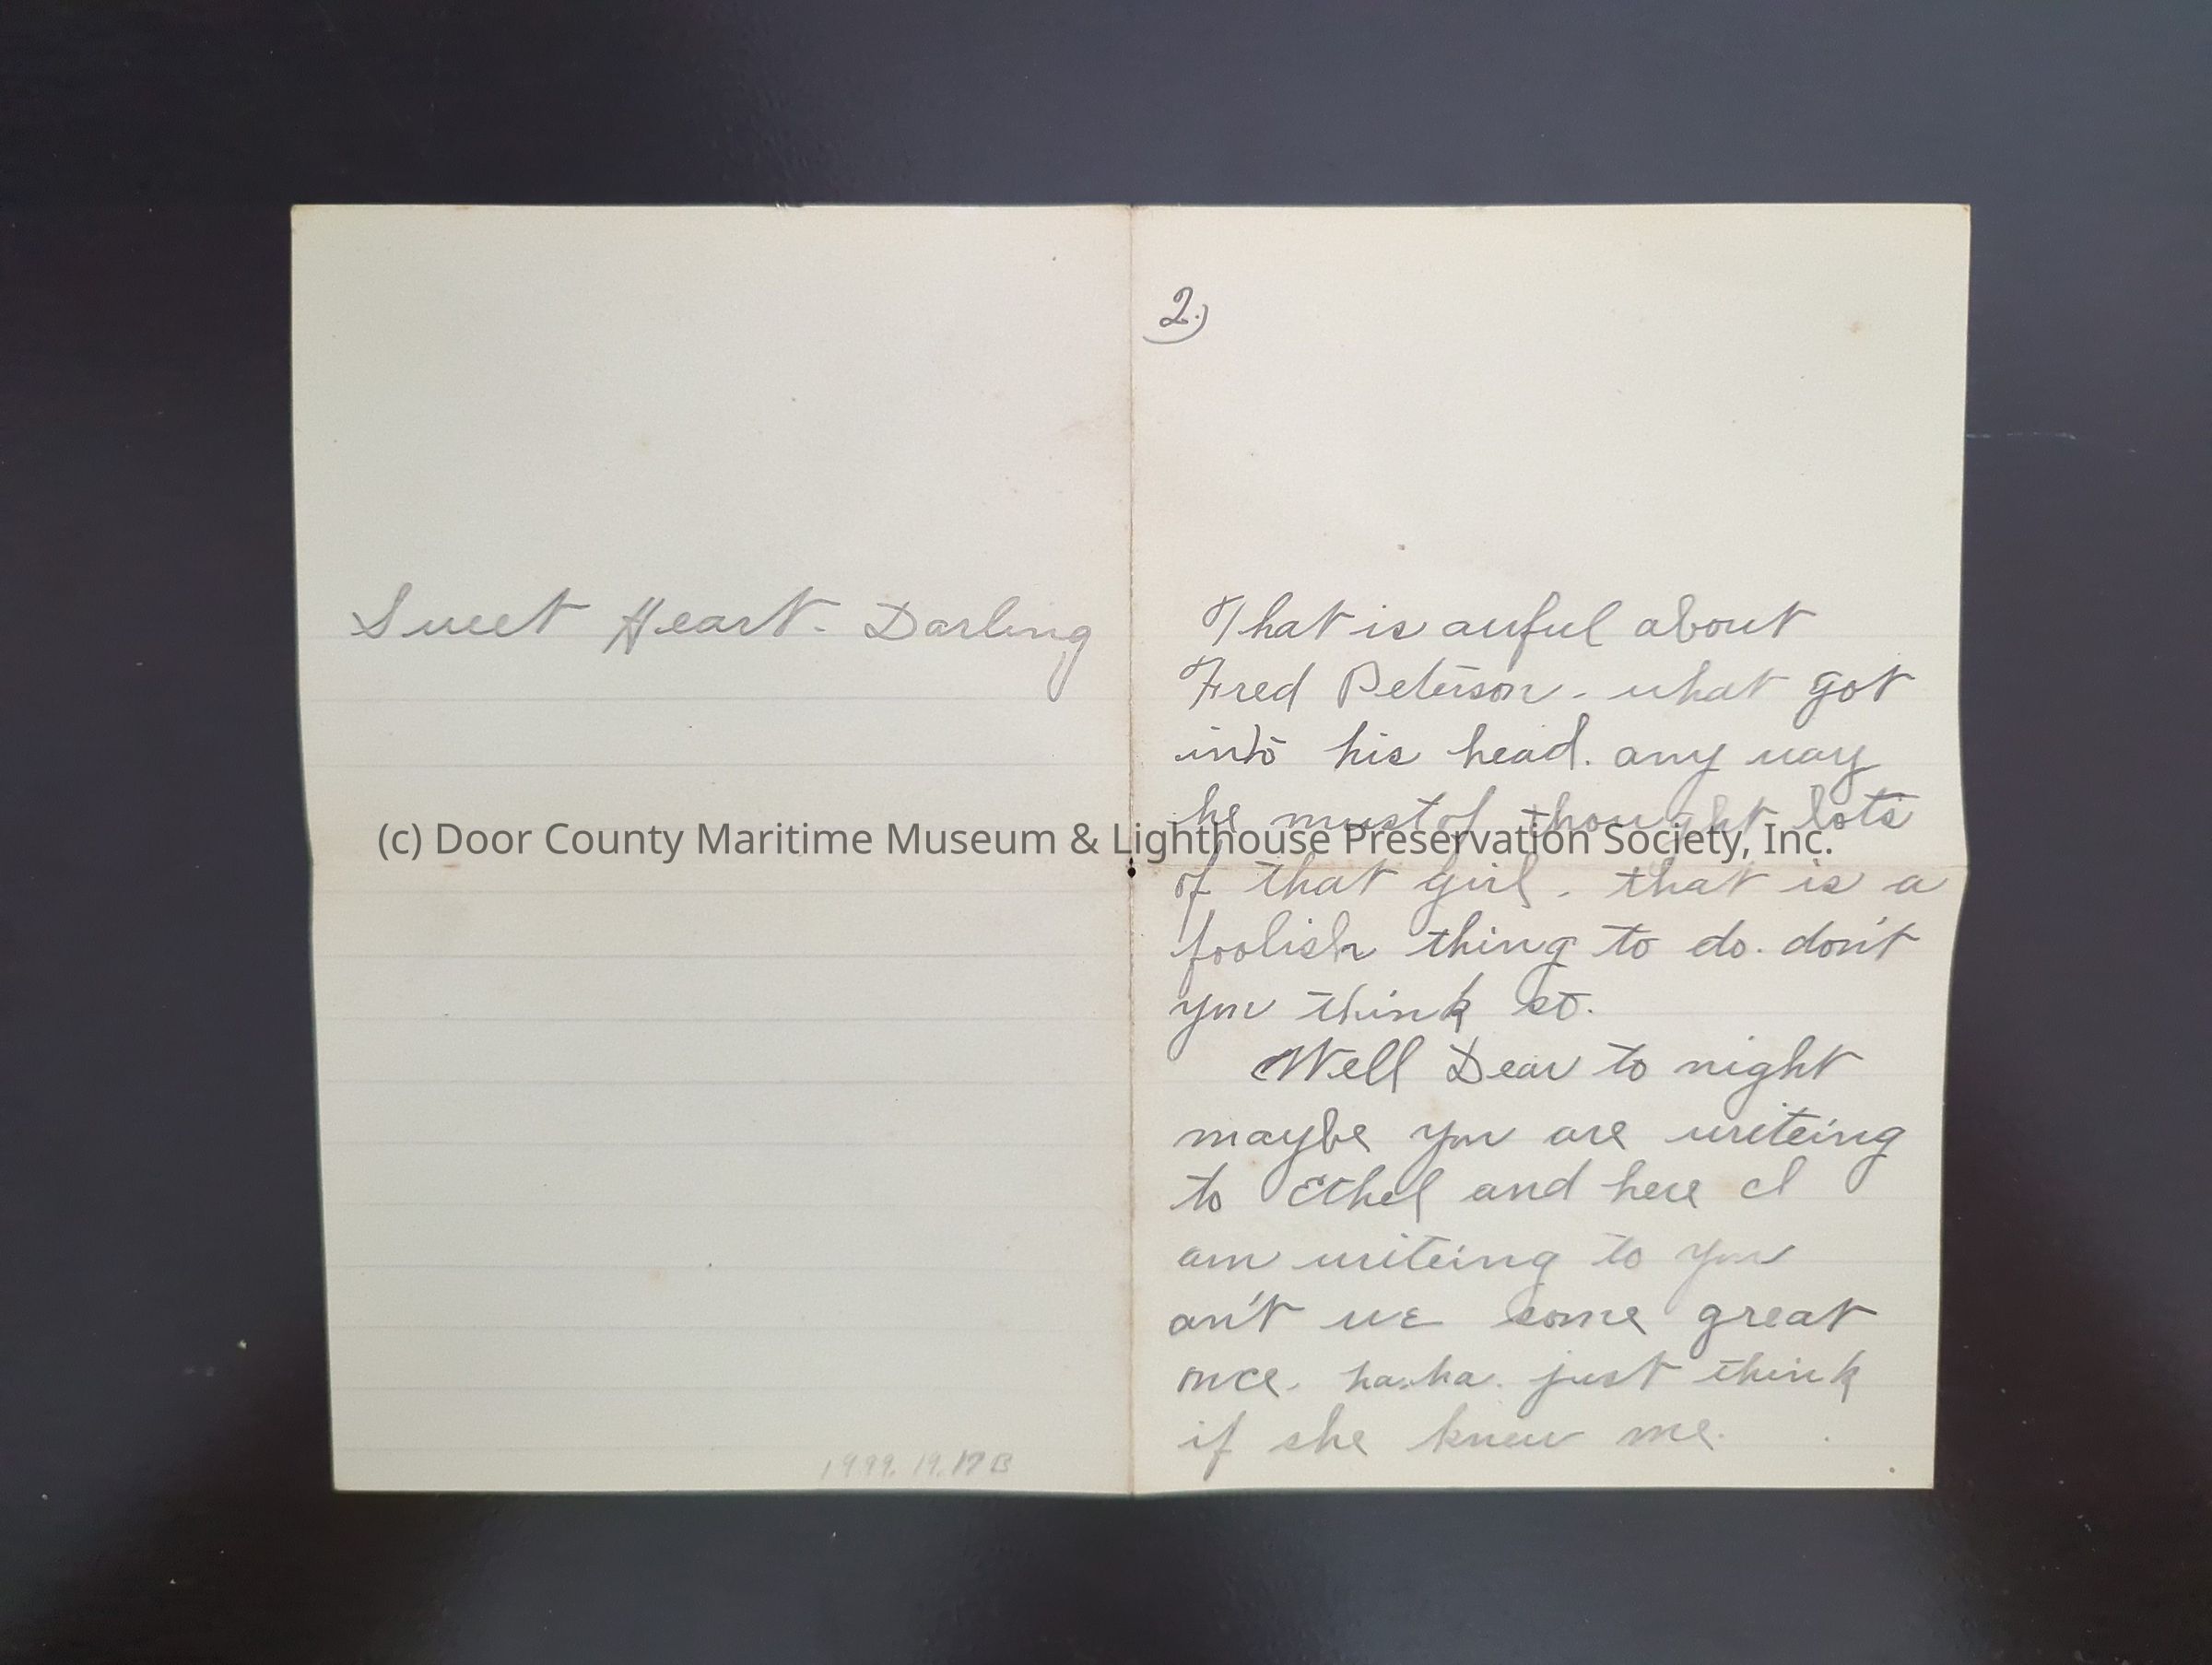 Sweet Heart. Darling
1999.19.17B
2.)
That is awful about
Fred Peterson. what got
into his head. any way
he mustof thought lots
of that girl. that is a
foolish thing to do. don't
you think so.
Well Dear to night
maybe you are writeing
to Ethel and here I
am writeing to you
an't we some great
once. ha.ha. just think
if she knew me.
(c) Door County Maritime Museum & Lighthouse Preservation Society, Inc.